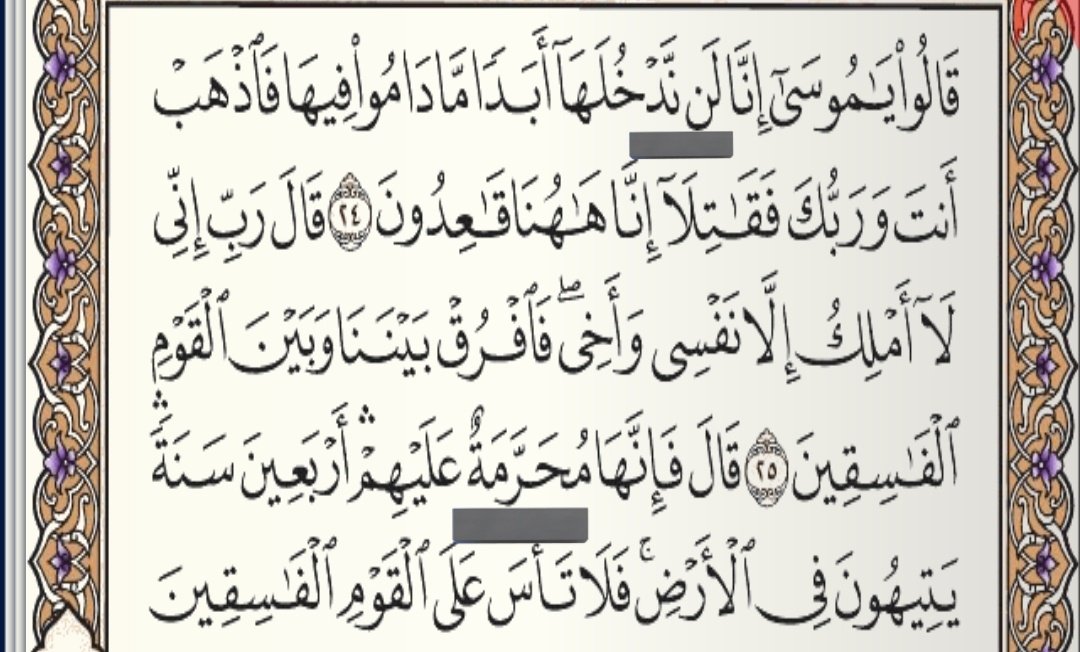 قَالُواْ يَٰمُوسَىٰٓ إِنَّا لَن نَّدۡخُلَهَآ أَبَدٗا مَّا دَامُواْ فِيهَا فَٱذۡهَبۡ
أَنتَ وَرَبُّكَ فَقَٰتِلَآ إِنَّا هَٰهُنَا قَٰعِدُونَ ٢٤ قَالَ رَبِّ إِنِّي
لَآ أَمۡلِكُ إِلَّا نَفۡسِي وَأَخِيۖ فَٱفۡرُقۡ بَيۡنَنَا وَبَيۡنَ ٱلۡقَوۡمِ
ٱلۡفَٰسِقِينَ ٢٥ قَالَ فَإِنَّهَا مُحَرَّمَةٌ عَلَيۡهِمۡۛ أَرۡبَعِينَ سَنَةٗۛ
يَتِيهُونَ فِي ٱلۡأَرۡضِۚ فَلَا تَأۡسَ عَلَى ٱلۡقَوۡمِ ٱلۡفَٰسِقِينَ